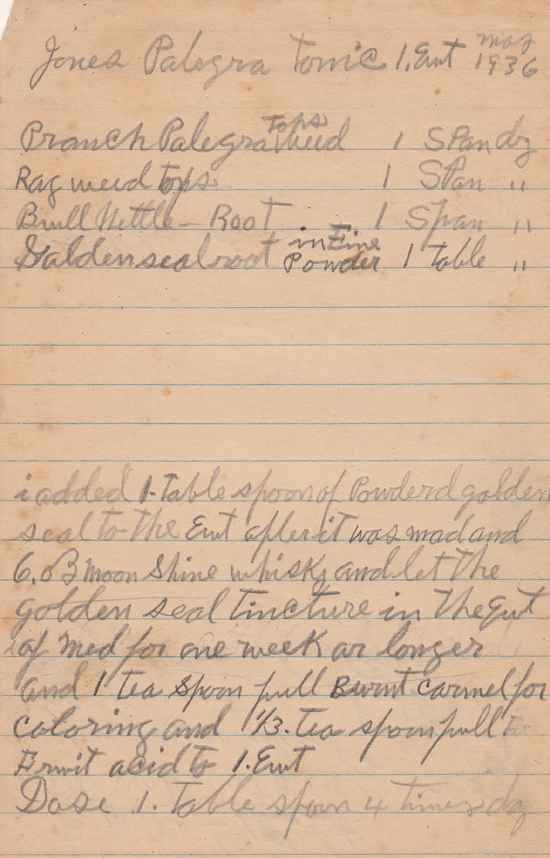 Jones Palegra Tonic 1. Ent may 1936
Pranch Palegra Weed tops 1 Span dg
Rag weed tops 1 Span "
Bull Nettle - Root 1 Span "
Galdenseal root in Fine Powder 1 Table "
i added 1. Table spoon of Powderd golden
seal to the Ent after it was mad and
6. oz Moon Shine whisky and let the
golden seal Tincture in The Ent
of Med for one week ar longer
and 1 Tea Spoon full Burnt carmel for
coloring and 1/3. Tea spoon full
Fruit acid to 1. Ent
Dose 1. Table spoon 4 times dg